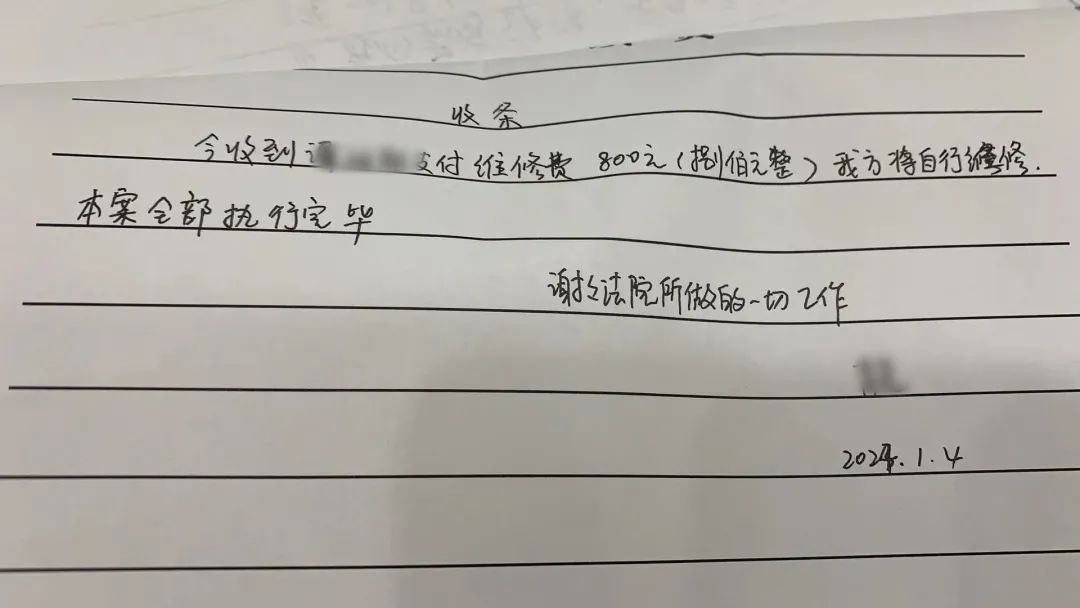 收条
今收到 支付维修费 800元(捌佰元整)我方将自行维修.
本案全部执行完毕
谢谢法院所做的一切工作
2024.1.4